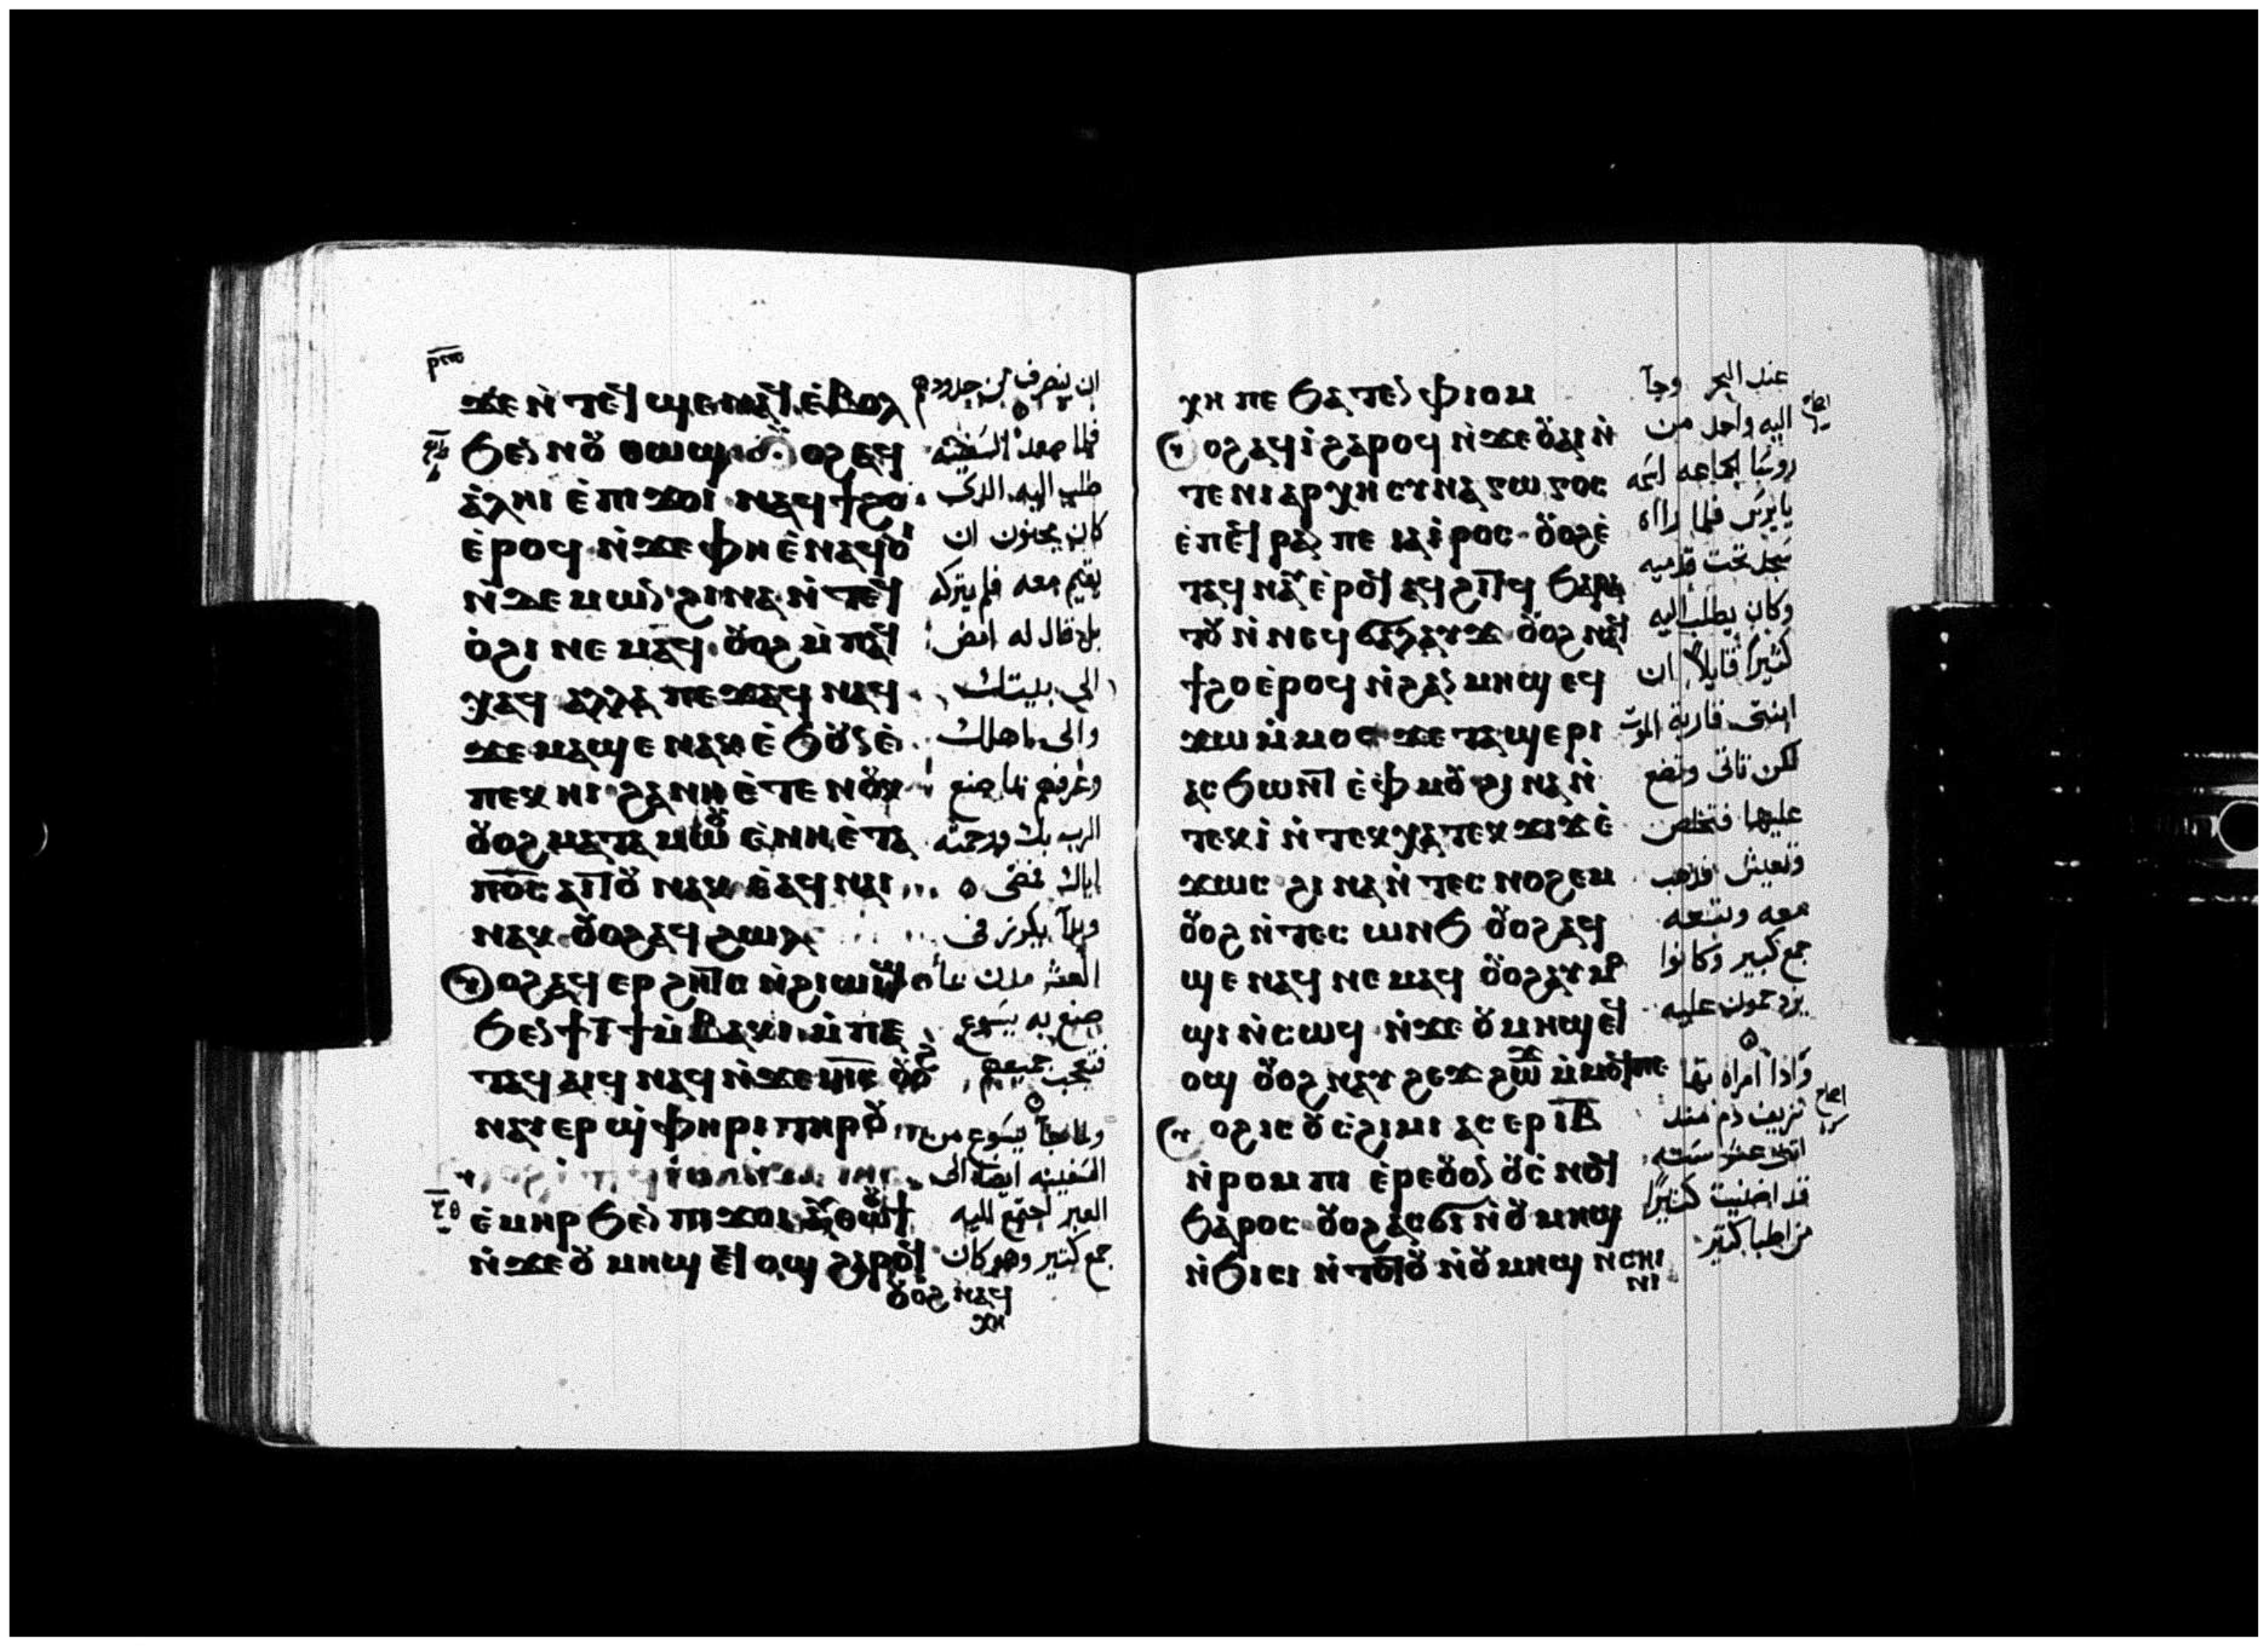 ⲣⲙⲑ
ϫⲉ ⲛ̀ⲧⲉϥϣⲉⲛⲁϥ ⲉ̀ⲃⲟⲗ
ϧⲉⲛ ⲛⲟⲩⲑⲱϣ ⲟⲩⲟϩ ⲉϥ
ⲁ̀ⲗⲏⲓ ⲉ̀ⲡⲓϫⲟⲓ ⲛⲁϥϯϩⲟ
ⲉ̀ⲣⲟϥ ⲛ̀ϫⲉ ⲫⲏ ⲉ̀ⲛⲁϥⲟⲓ
ⲛ̀ⲇⲉⲙⲱⲛ ϩⲓⲛⲁ ⲛ̀ⲧⲉϥ
ⲟ̀ϩⲓ ⲛⲉⲙⲁϥ ⲟⲩⲟϩ ⲙ̀ⲡⲉϥ
ⲭⲁϥ ⲁⲗⲗⲁ ⲡⲉϫⲁϥ ⲛⲁϥ
ϫⲉ ⲙⲁϣⲉ ⲛⲁⲕ ⲉ̀ϧⲟⲩⲛ ⲉ̀
ⲡⲉⲕⲏⲓ ϩⲁ ⲛⲏ ⲉ̀ⲧⲉ ⲛⲟⲩⲕ
ⲟⲩⲟϩ ⲙⲁⲧⲁⲙⲱⲟⲩ ⲉ̀ⲛⲏ ⲉ̀ⲧⲁ
ⲡⲟ̅ⲥ̅ ⲁⲓⲧⲟⲩ ⲛⲁⲕ ⲉ̀ⲁϥⲛⲁⲓ
ⲛⲁⲕ ⲟⲩⲟϩ ⲁϥϩⲱⲗ
ⲟⲩⲟϩ ⲁϥⲉⲣϩⲏⲧⲥ ⲛ̀ϩⲓⲱⲓϣ
ϧⲉⲛ ϯⲓ̅ϯ ⲙ̀ⲃⲁⲕⲓ ⲙ̀ⲡⲉ
ⲧⲁϥⲁⲓϥ ⲛⲁϥ ⲛ̀ϫⲉ ⲓⲏ̅ⲥ̅ ⲟⲩⲟϩ
ⲛⲁⲩⲉⲣϣⲫⲏⲣⲓ ⲧⲏⲣⲟⲩ
ⲉ̀ⲙⲏⲣ ϧⲉⲛ ⲡⲓϫⲟⲓ ⲁⲩⲑⲱⲟⲩϯ
ⲛ̀ϫⲉ ⲟⲩⲙⲏϣ ⲉϥⲟϣ ϩⲁⲣⲟϥ
ⲟⲩⲟϩ ⲛⲁϥ
ⲭⲏ
ان ينصرف من حدودهم
فلما صعد السفينه
طلب اليه الدى
كان مجنون ان
يقيم معه فلم يتركه
بل قال له امض
الى بيتك
والى اهلك
وعرفهم بما صنع
الرب بك ورحمته
اياك فمضى
وبدا يكرز فى
العشر مدن بما
صنع به يسوع
فتعجب جميعهم
ولما جا يسوع من
السفينه ايضا الى
العبر اجتمع اليه
جمع كتير وهو كان
ⲭⲏ ⲡⲉ ϧⲁⲧⲉⲛ ⲫⲓⲟⲙ
ⲟⲩⲟϩ ⲁϥⲓ̀ ϩⲁⲣⲟϥ ⲛ̀ϫⲉ ⲟⲩⲁⲓ ⲛ̀
ⲧⲉ ⲛⲓⲁⲣⲭⲏⲥⲩⲛⲁⲅⲱⲅⲟⲥ
ⲉ̀ⲡⲉϥⲣⲁⲛ ⲡⲉ ⲓⲁⲓ̀ⲣⲟⲥ ⲟⲩⲟϩ ⲉ̀
ⲧⲁϥⲛⲁⲩ ⲉ̀ⲣⲟϥ ⲁϥϩⲓⲧϥ ϧⲁⲣⲁ
ⲧⲟⲩ ⲛ̀ⲛⲉϥϭⲁⲗⲁⲩϫ ⲟⲩⲟϩ ⲛⲁϥ
ϯϩⲟ ⲉ̀ⲣⲟϥ ⲛ̀ϩⲁⲛⲙⲏϣ ⲉϥ
ϫⲱ ⲙ̀ⲙⲟⲥ ϫⲉ ⲧⲁϣⲉⲣⲓ
ⲁⲥϧⲱⲛⲧ ⲉ̀ⲫⲙⲟⲩ ϩⲓⲛⲁ ⲛ̀
ⲧⲉⲕⲓ̀ ⲛ̀ⲧⲉⲕⲭⲁ ⲧⲉⲕϫⲓϫ ⲉ̀
ϫⲱⲥ ϩⲓⲛⲁ ⲛ̀ⲧⲉⲥⲛⲟϩⲉⲙ
ⲟⲩⲟϩ ⲛ̀ⲧⲉⲥⲱⲛϧ ⲟⲩⲟϩ ⲁϥ
ϣⲉ ⲛⲁϥ ⲛⲉⲙⲁϥ ⲟⲩⲟϩ ⲁⲩⲙⲟ
ϣⲓ ⲛ̀ⲥⲱϥ ⲛ̀ϫⲉ ⲟⲩⲙⲏϣ ⲉϥ
ⲟϣ ⲟⲩⲟϩ ⲛⲁⲩϩⲉϫϩⲱϫ ⲙ̀ⲙⲟϥ ⲡⲉ
ⲟⲩⲟϩ ⲓⲥ ⲟⲩⲥ̀ϩⲓⲙⲓ ⲁⲥⲉⲣ ⲓ̅ⲃ̅
ⲛ̀ⲣⲟⲙⲡⲓ ⲉ̀ⲣⲉ ⲟⲩⲟⲛ ⲟⲩⲥ̀ⲛⲟϥ
ϧⲁⲣⲟⲥ ⲟⲩⲟϩ ⲁⲥϭⲓ ⲛ̀ⲟⲩⲙⲏϣ
ⲛ̀ϧⲓⲥⲓ ⲛ̀ⲧⲟⲧⲟⲩ ⲛ̀ⲟⲩⲙⲏϣ ⲛ̀ⲥⲏⲓ
ⲛⲓ
عند البحر وجا
اليه واحد من
روسا الجماعه اسمه
يايرس فلما راه
سجد تحت قدميه
وكان يطلب اليه
كثيرا قايلا ان
ابنتى قاربة الموت
لكن تاتى وتضع
عليها فتخلص
وتعيش فذهب
معه وتبعه
جمع كبير وكانوا
يزدحمون عليه
واذا امراه بها
نزيف دم منذ
اتنى عشر سنه
قد اضنيت كثيرا
من اطبا كتير